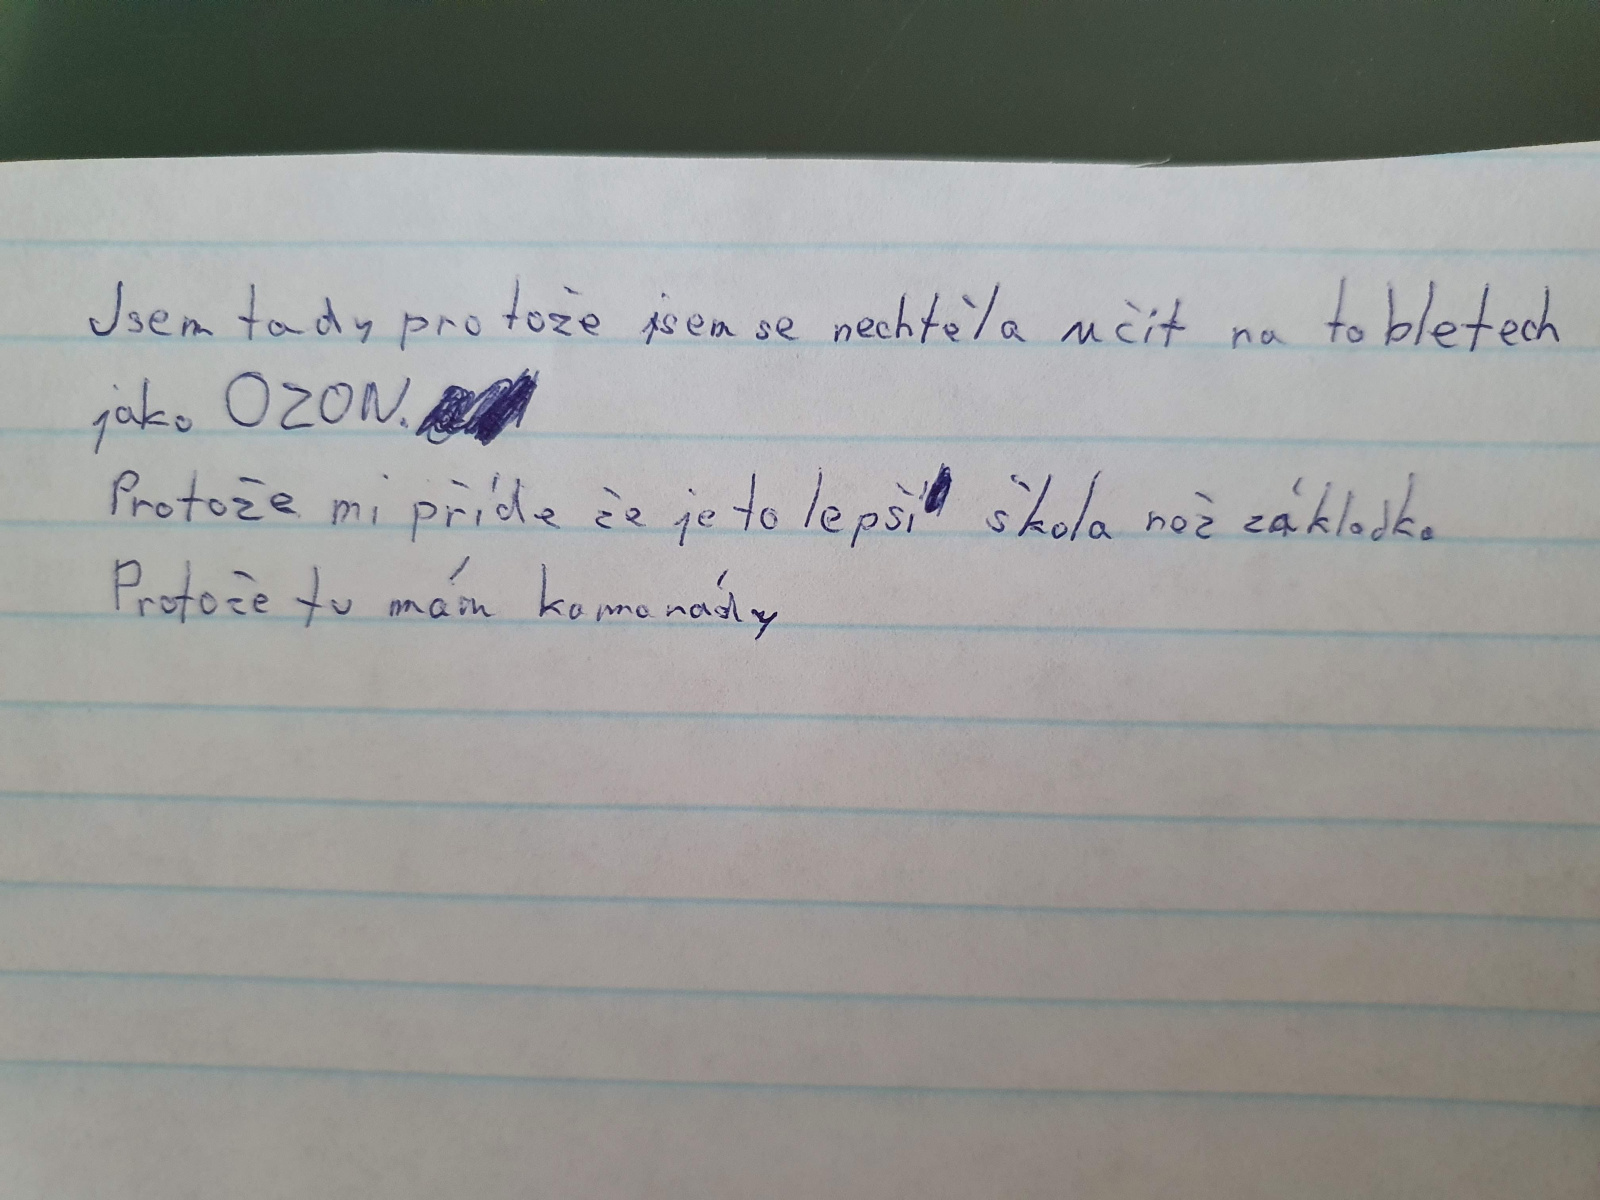 Jsem tady protože jsem se nechtěla učit na tabletech
jako OZON.
Protože mi příde že je to lepší škola než základka
Protože tu mám kamarády